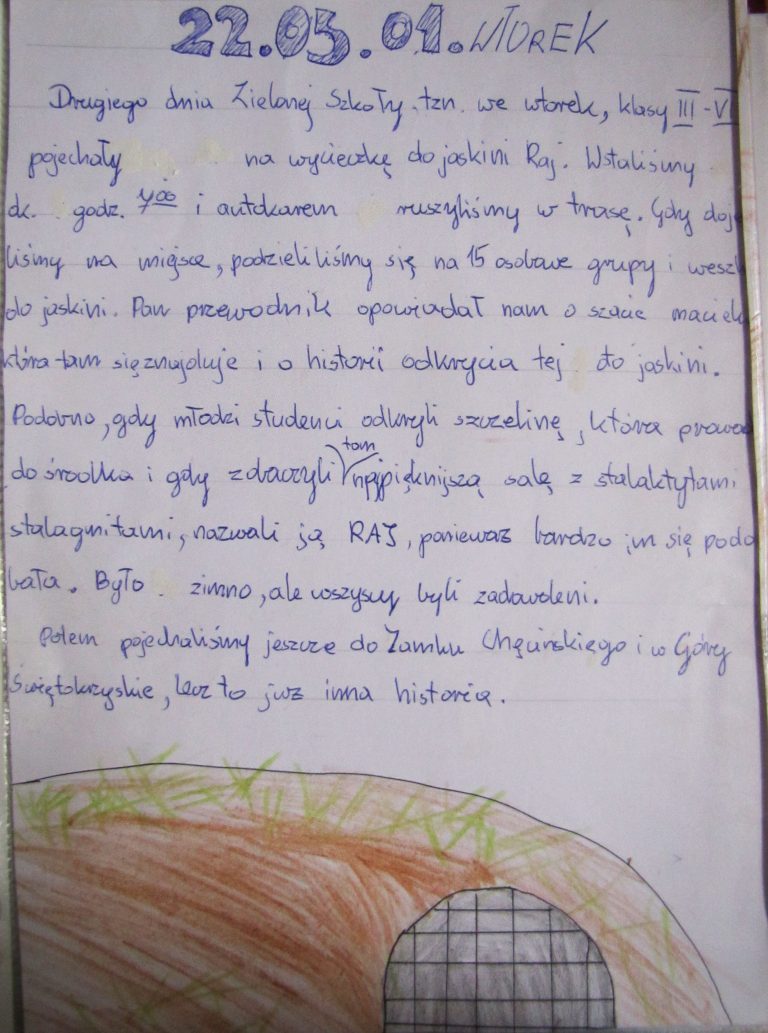 22.05.01. WTOREK
Drugiego dnia Zielonej Szkoły tzn. we wtorek, klasy III-VI
pojechały na wycieczkę do jaskini Raj. Wstaliśmy
ok. godz. 7⁰⁰ i autokarem ruszyliśmy w trasę. Gdy doje
liśmy na miejsce, podzieliliśmy się na 15 osobowe grupy i weszl
do jaskini. Pan przewodnik opowiadał nam o szacie naciek
która tam się znajduje i o historii odkrycia tej do jaskini.
Podobno, gdy młodzi studenci odkryli szczelinę, która prowad
do środka i gdy zobaczyli tam najpiękniejszą salę z stalaktytami
stalagmitami, nazwali ją RAJ, ponieważ bardzo im się podo
bała. Było zimno, ale wszyscy byli zadowoleni.
Potem pojechaliśmy jeszcze do Zamku Chęcińskiego i w Góry
Świętokrzyskie, lecz to już inna historia.